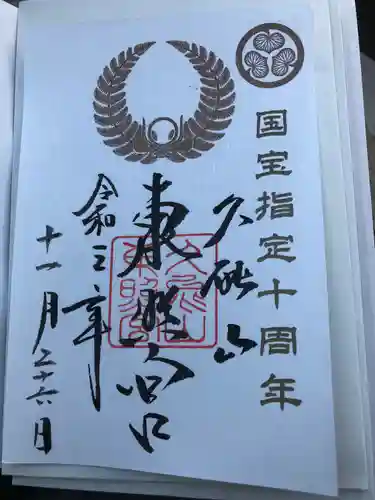 国宝指定十周年
久能山
東照宮
令和三年
十一月二十六日